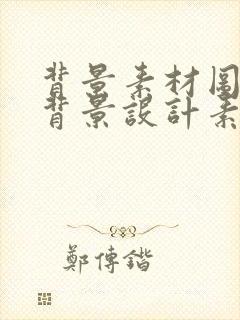 背景素材圖
背景設計素
鄭傳鍇